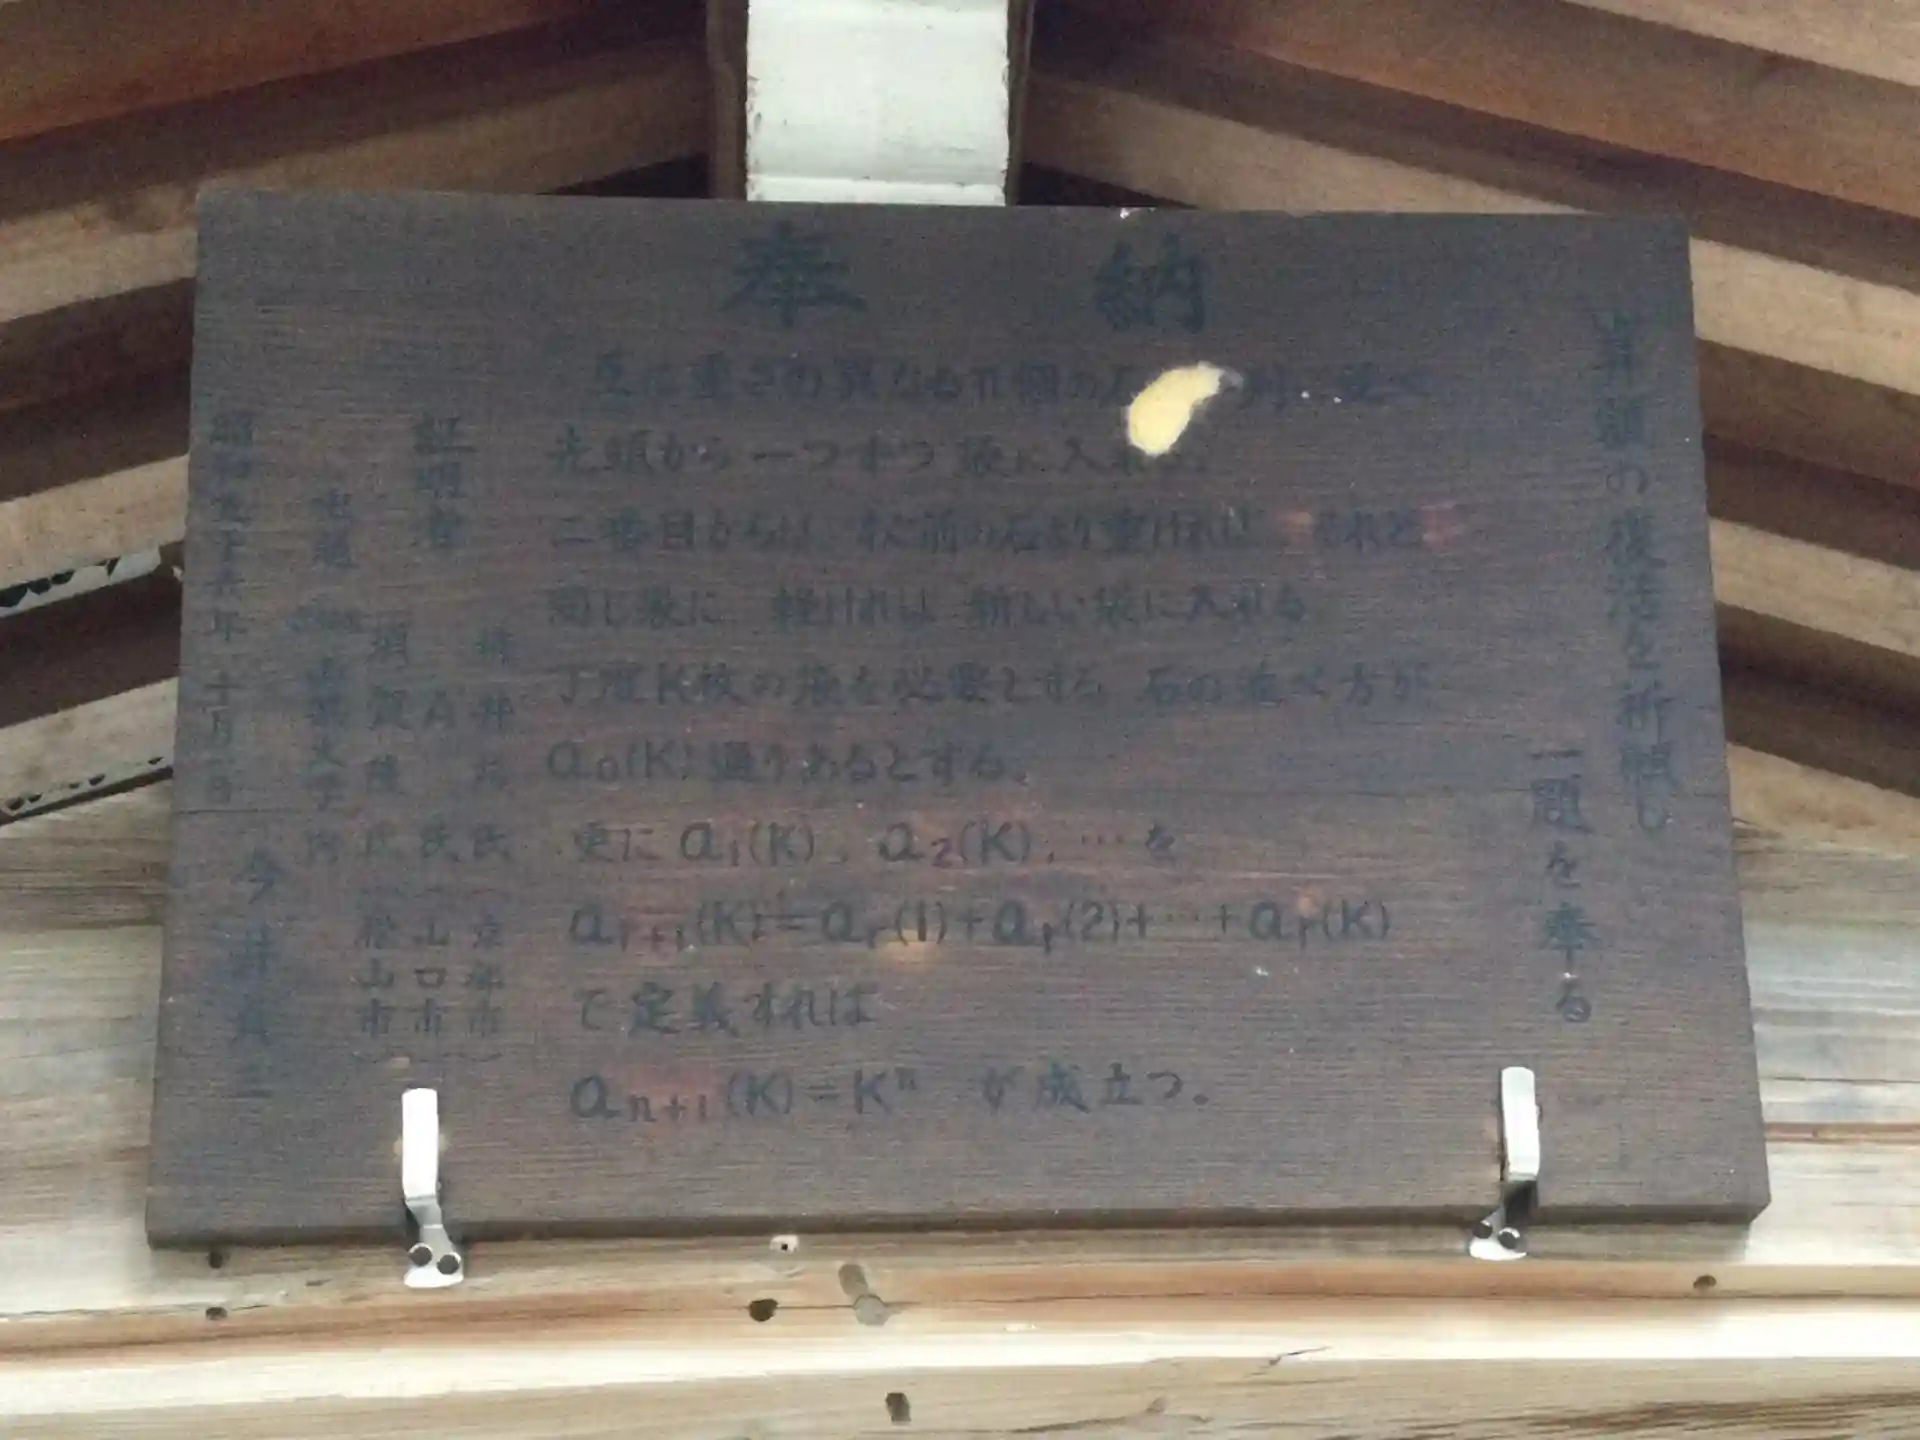 奉納
算額の復活を祈願し
一題を奉る
互に重さの異なるn個の石 列に並べ
先頭から一つずつ袋に入れる。
二番目からは、 前の石より重ければ それと
同じ袋に 軽ければ 新しい袋に入れる
丁度K枚の袋を必要とする 石の並べ方が
a₀(K)通りあるとする。
更に a₁(K), a₂(K), … を
aᵣ₊₁(K)=aᵣ(1)+aᵣ(2)+…+aᵣ(K)
で定義すれば
aₙ₊₁(K)=Kⁿ が成立つ。
証明者
井 氏(京都市)
A 氏(山口市)
須賀 氏(松山市)
出題
大学内
昭和五十 年十月 日
今井